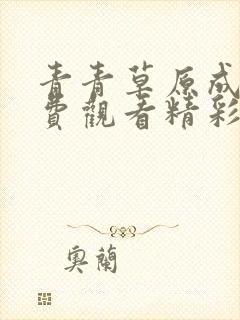 青青草原成
費觀看精彩
奧蘭